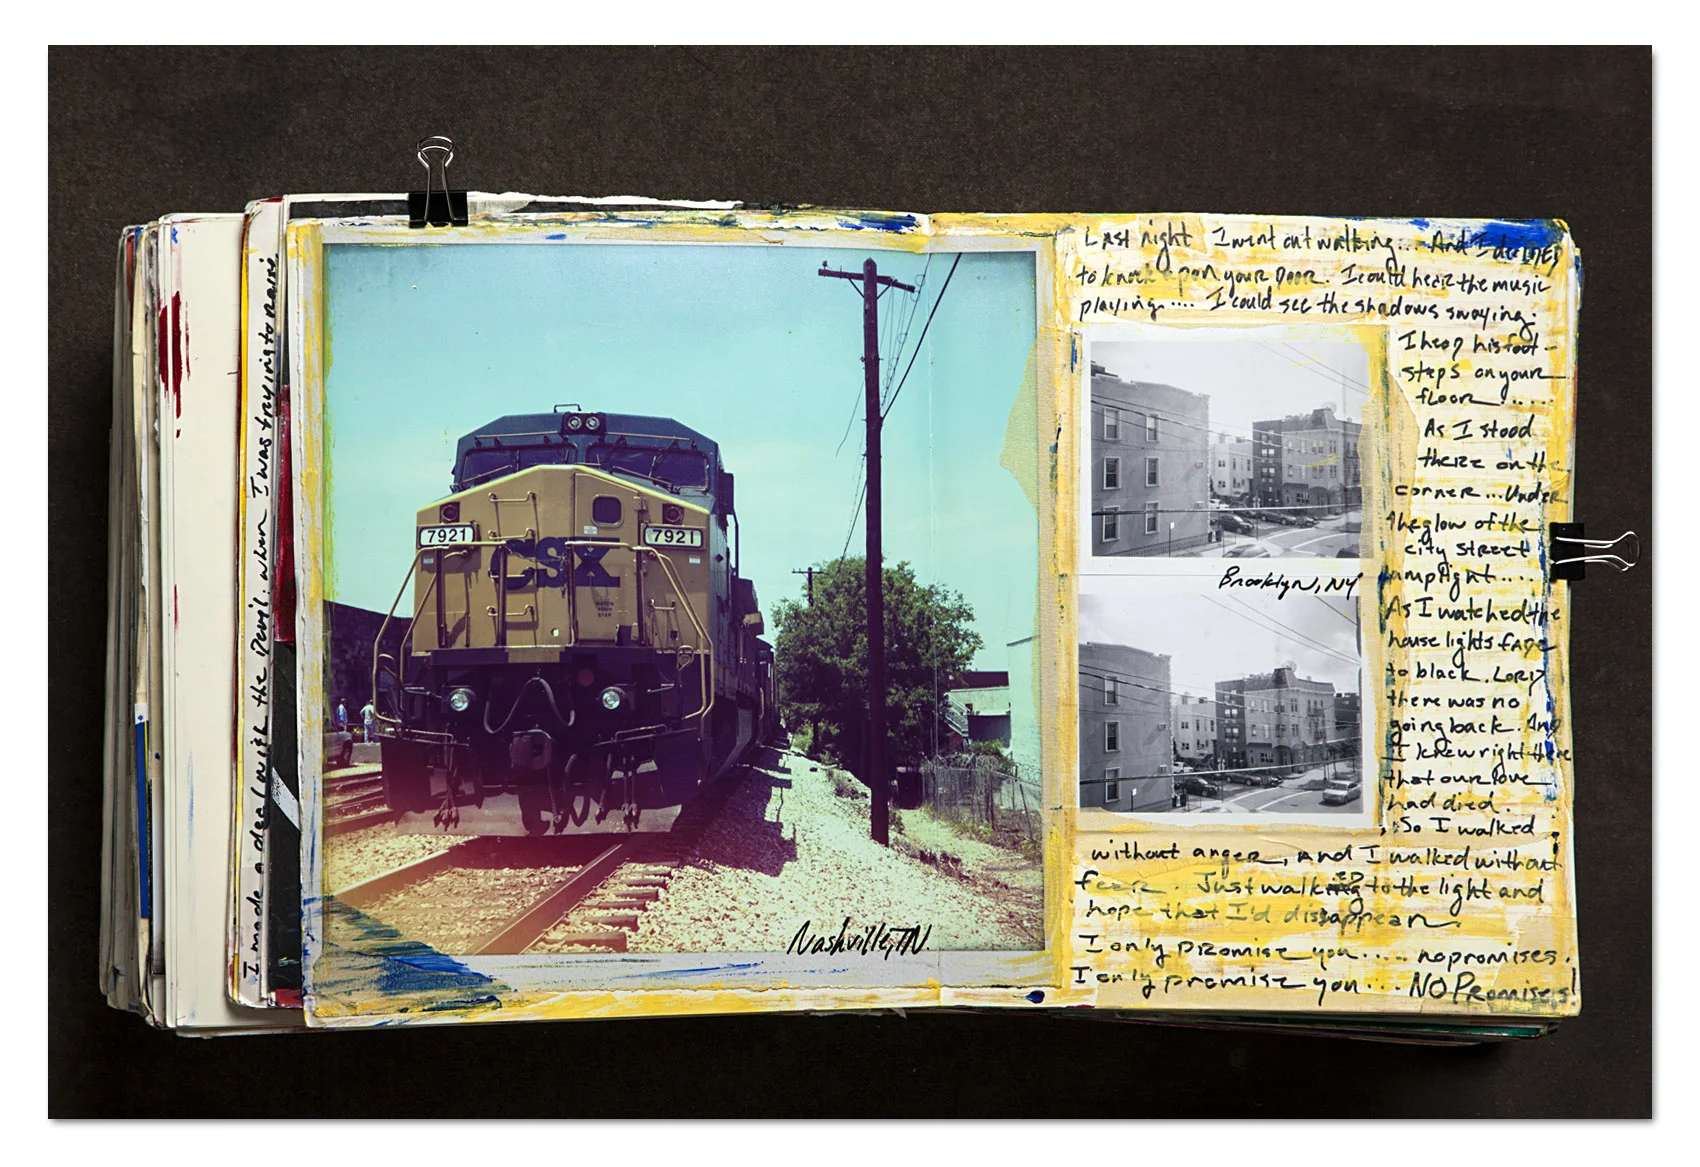 I made a deal with the Devil. when I was trying to
7921
7921
CSX
Nashville, TN.
Last night I went out walking... And I deciDED
to knock upon your Door. I could hear the music
playing.... I could see the shadows swaying.
I heaD his foot-
steps on your
floor.....
As I stood
there on the
corner... Under
the glow of the
city street
lamplight....
As I watched the
house lights faDe
to black. LorD
there was no
going back. AnD
I knew right there
that our love
had died.
So I walked
without anger, and I walked without
fear. Just walkED to the light and
hope that I'd dissappear.
I only promise you..... no promises.
I only promise you... NO Promises!
Brooklyn, NY